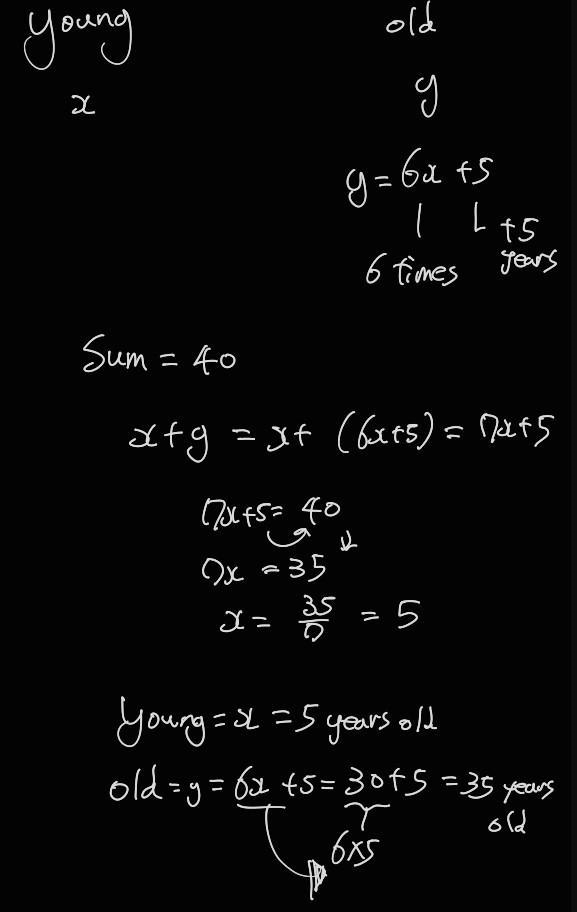 young old
x y
y = 6x + 5
6 times +5 years
Sum = 40
x + y = x + (6x+5) = 7x+5
7x+5 = 40
7x = 35
x = 35/7 = 5
Young = x = 5 years old
old = y = 6x + 5 = 30+5 = 35 years old
6x5